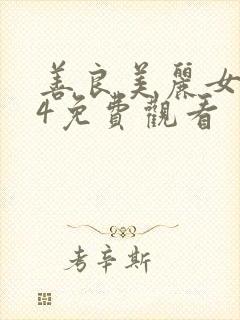 善良美麗女
4免費觀看
考辛斯